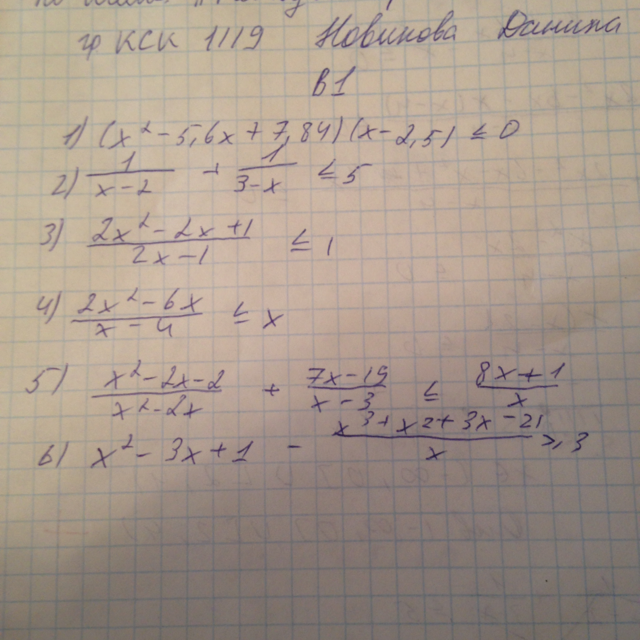 гр КСК 1119 Новикова Данила
В1
1) (x² - 5,6x + 7,84)(x - 2,5) ≤ 0
2) 1/(x - 2) + 1/(3 - x) ≤ 5
3) (2x² - 2x + 1)/(2x - 1) ≤ 1
4) (2x² - 6x)/(x - 4) ≤ x
5) (x² - 2x - 2)/(x² - 2x) + (7x - 19)/(x - 3) ≤ (8x + 1)/x
6) x² - 3x + 1 - (x³ + x² + 3x - 21)/x ≥ 3